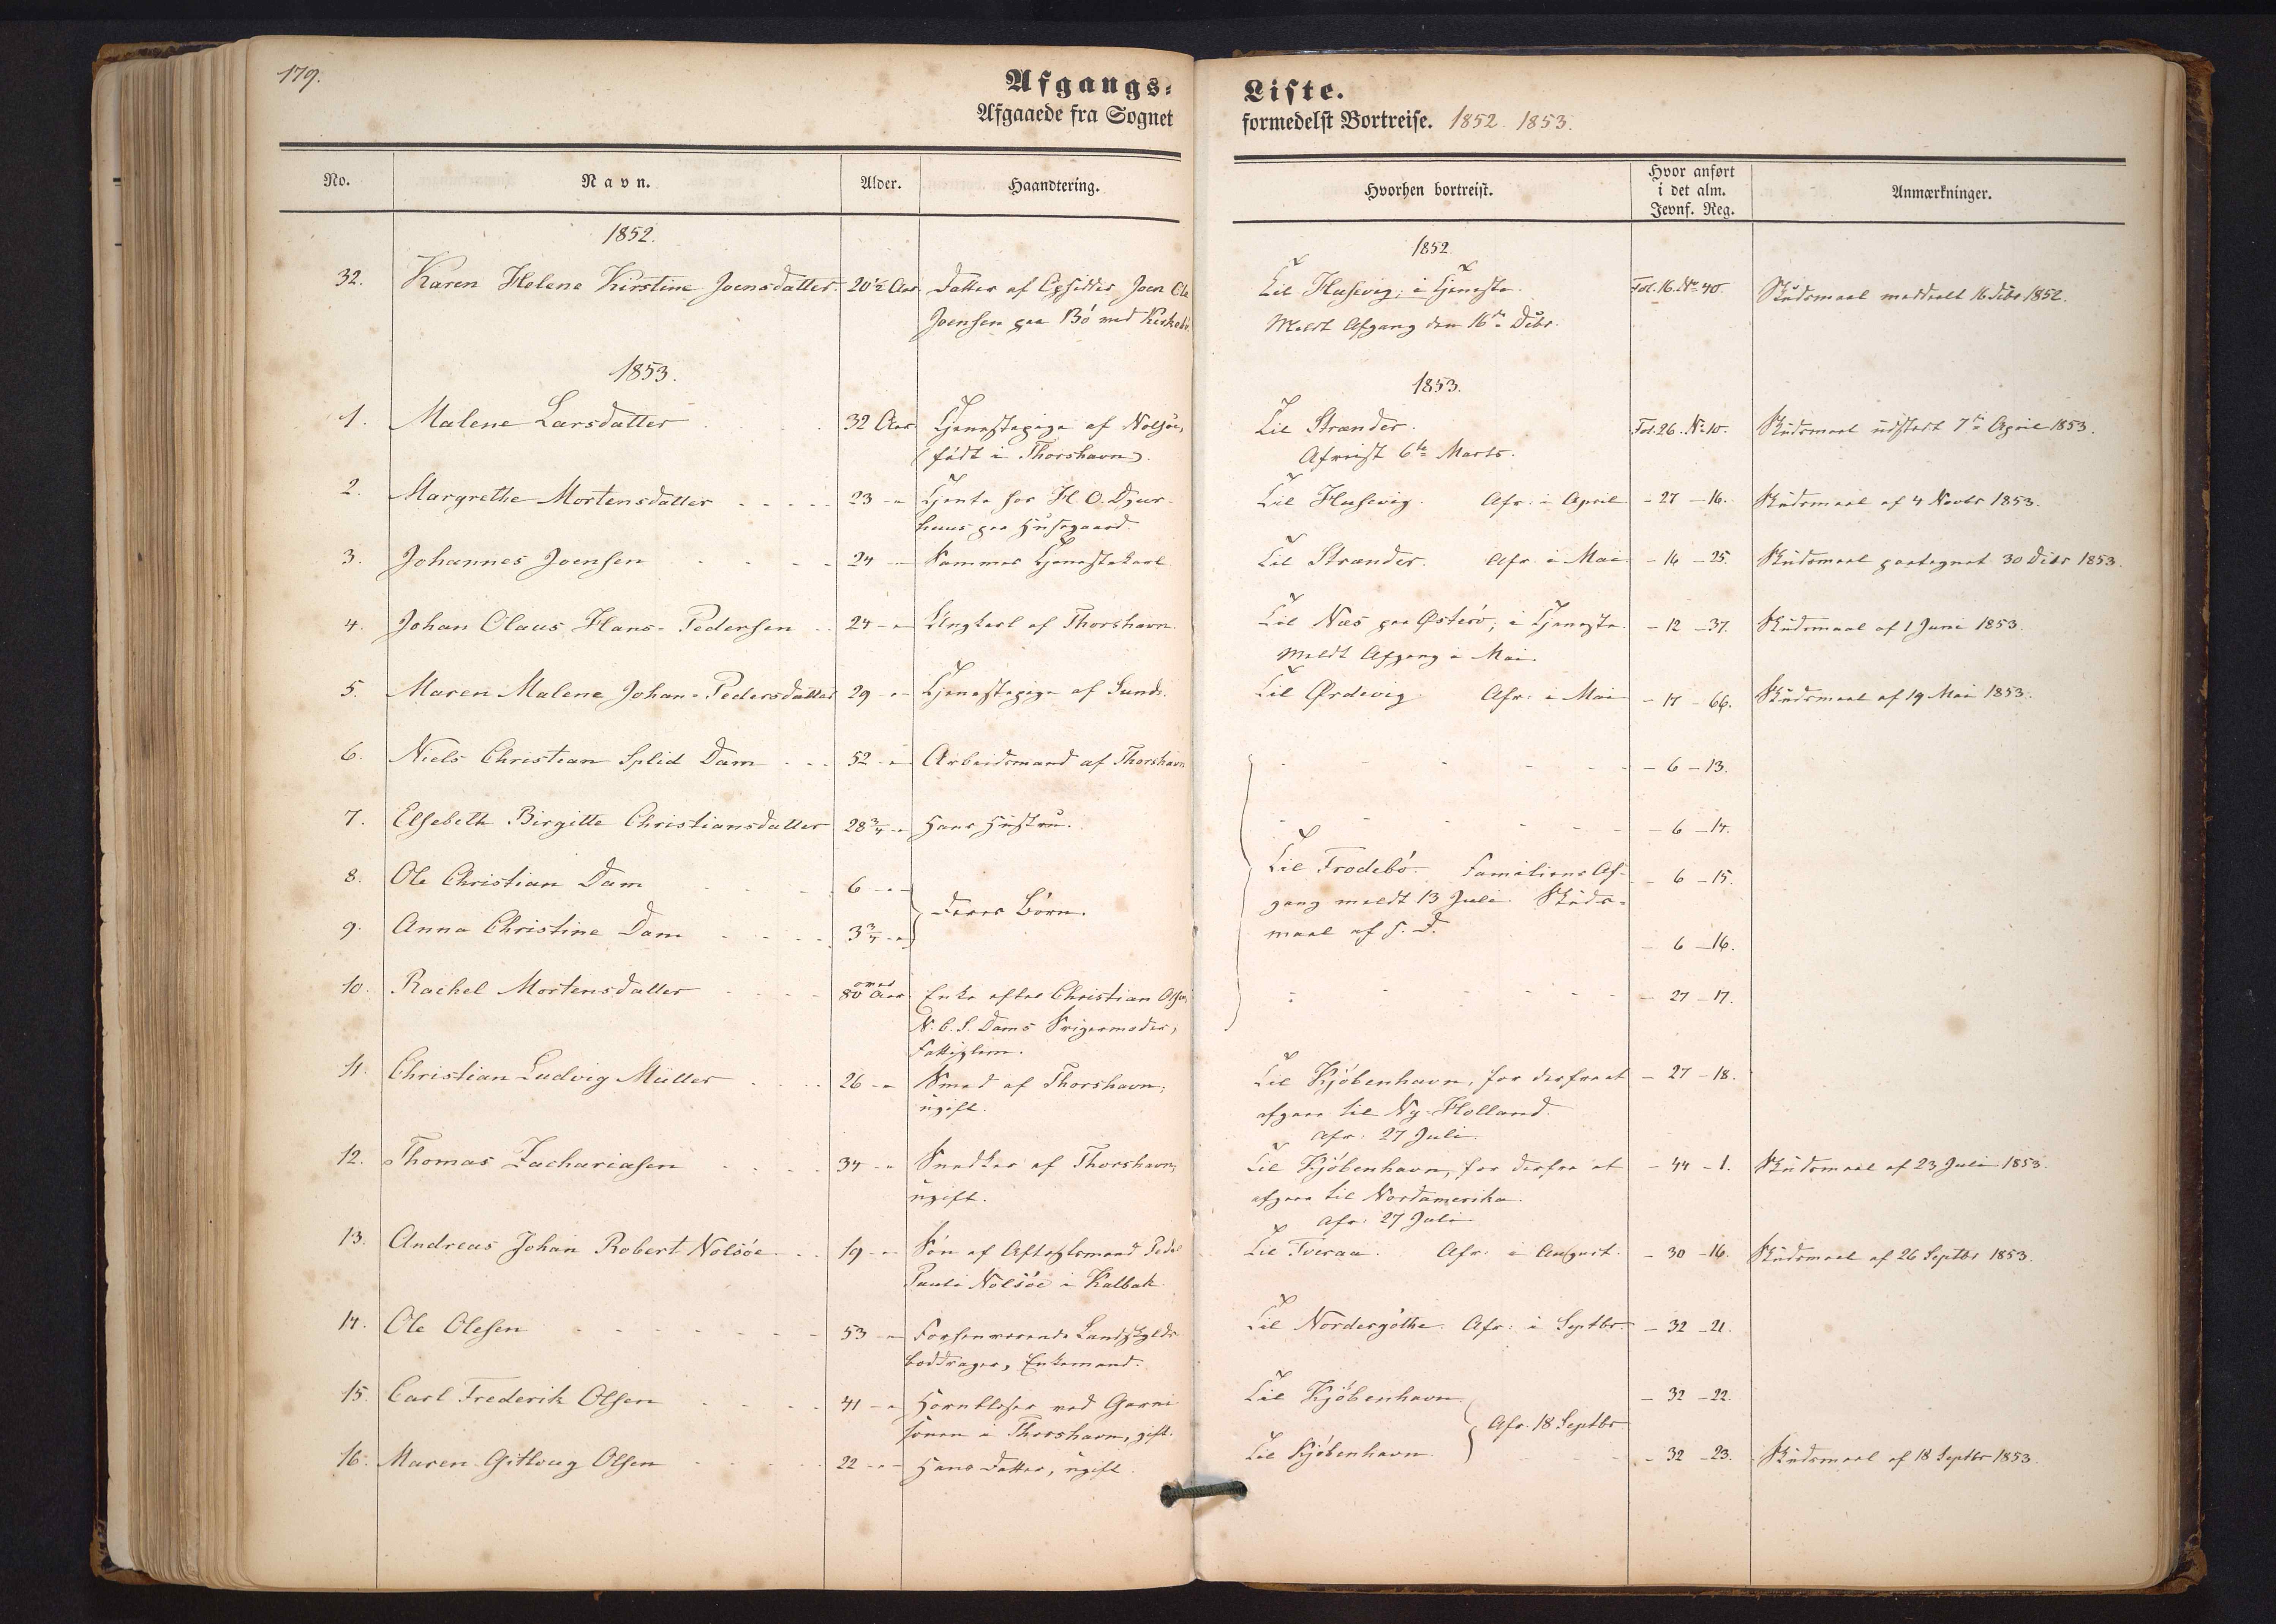 179.
Afgangs-
Afgaaede fra Sognet
No.
Navn.
Alder.
Haandtering.
1852.
32. Karen Helene Kirstine Joensdatter. 20½ Aar Datter af Opsidder Joen Ole
Joensen paa Bö ved
1853.
1. Malene Larsdatter 32 Aar Tjenestepige af Nolsöe,
(född i Thorshavn).
2. Margrethe Mortensdatter 23 -"- Tjente hos H. O. Djur-
huus paa Husegaard.
3. Johannes Joensen 24 -"- Sammes Tjenestekarl.
4. Johan Olaus Hans-Pedersen 24 -"- Ungkarl af Thorshavn.
5. Maren Malene Johan-Pedersdatter 29 -"- Tjenestepige af Sund.
6. Niels Christian Splid Dam 52 -"- Arbeidsmand af Thorshavn
7. Elsebeth Birgitte Christiansdatter 28¾ -"- Hans Hustru.
8. Ole Christian Dam 6 -"-
Deres Börn.
9. Anna Christine Dam 3¾ -"-
10. Rachel Mortensdatter omtr. 80 Aar Enke efter Christian Olsen,
N. C. S. Dams Svigermoder,
Fattiglem.
11. Christian Ludvig Müller 26 -"- Smed af Thorshavn,
ugift.
12. Thomas Zachariasen 34 -"- Snedker af Thorshavn,
ugift.
13. Andreas Johan Robert Nolsöe 19 -"- Sön af Aftægtsmand Peder
Pauli Nolsöe i Kalbak
14. Ole Olesen 53 -"- Forhenværende Landfogeds-
budbrager, Enkemand.
15. Carl Frederik Olsen 41 -"- Hornblæser ved Garni-
sonen i Thorshavn, gift.
16. Maren Gittvug Olsen 22 -"- Hans Datter, ugift.
Liste.
formedelst Bortreise. 1852. 1853.
Hvorhen bortreist.
Hvor anført
i det alm.
Jevnf. Reg.
Anmærkninger.
1852.
Til Husevig; i Tjeneste. Fol. 16. No 40. Skudsmaal meddeelt 16 Decbr 1852.
Meldt Afgang den 16de Decbr.
1853.
Til Strænder. Fol. 26. No 10. Skudsmaal udstedt 7de April 1853.
Afreist 6te Marts.
Til Husevig. Afr. i April - 27 - 16. Skudsmaal af 4 Novbr 1853.
Til Strænder. Afr. i Mai - 14 - 25. Skudsmaal paategnet 30 Decbr 1853.
Til Næs paa Østerö; i Tjeneste. - 12 - 37. Skudsmaal af 1 Juni 1853.
Meldt Afgang i Mai.
Til Ördevig. Afr. i Mai - 17 - 66. Skudsmaal af 19 Mai 1853.
- 6 - 13.
- 6 - 14.
Til Frodebö. Familiens Af- - 6 - 15.
gang meldt 13 Juli. Skuds-
maal af s. D.
- 6 - 16.
- 27 - 17.
Til Kjöbenhavn, for derfra at - 27 - 18.
afgaae til Ny-Holland.
Afr. 27 Juli.
Til Kjöbenhavn, for derfra at - 44 - 1. Skudsmaal af 23 Juli 1853.
afgaae til Nordamerika.
Afr. 27 Juli
Til Tveraa. Afr. i August. - 30 - 16. Skudsmaal af 26 Septbr 1853.
Til Nordergöthe. Afr. i Septbr. - 32 - 21.
Til Kjöbenhavn - 32 - 22.
Afr. 18 Septbr
Til Kjöbenhavn - 32 - 23. Skudsmaal af 18 Septbr 1853.